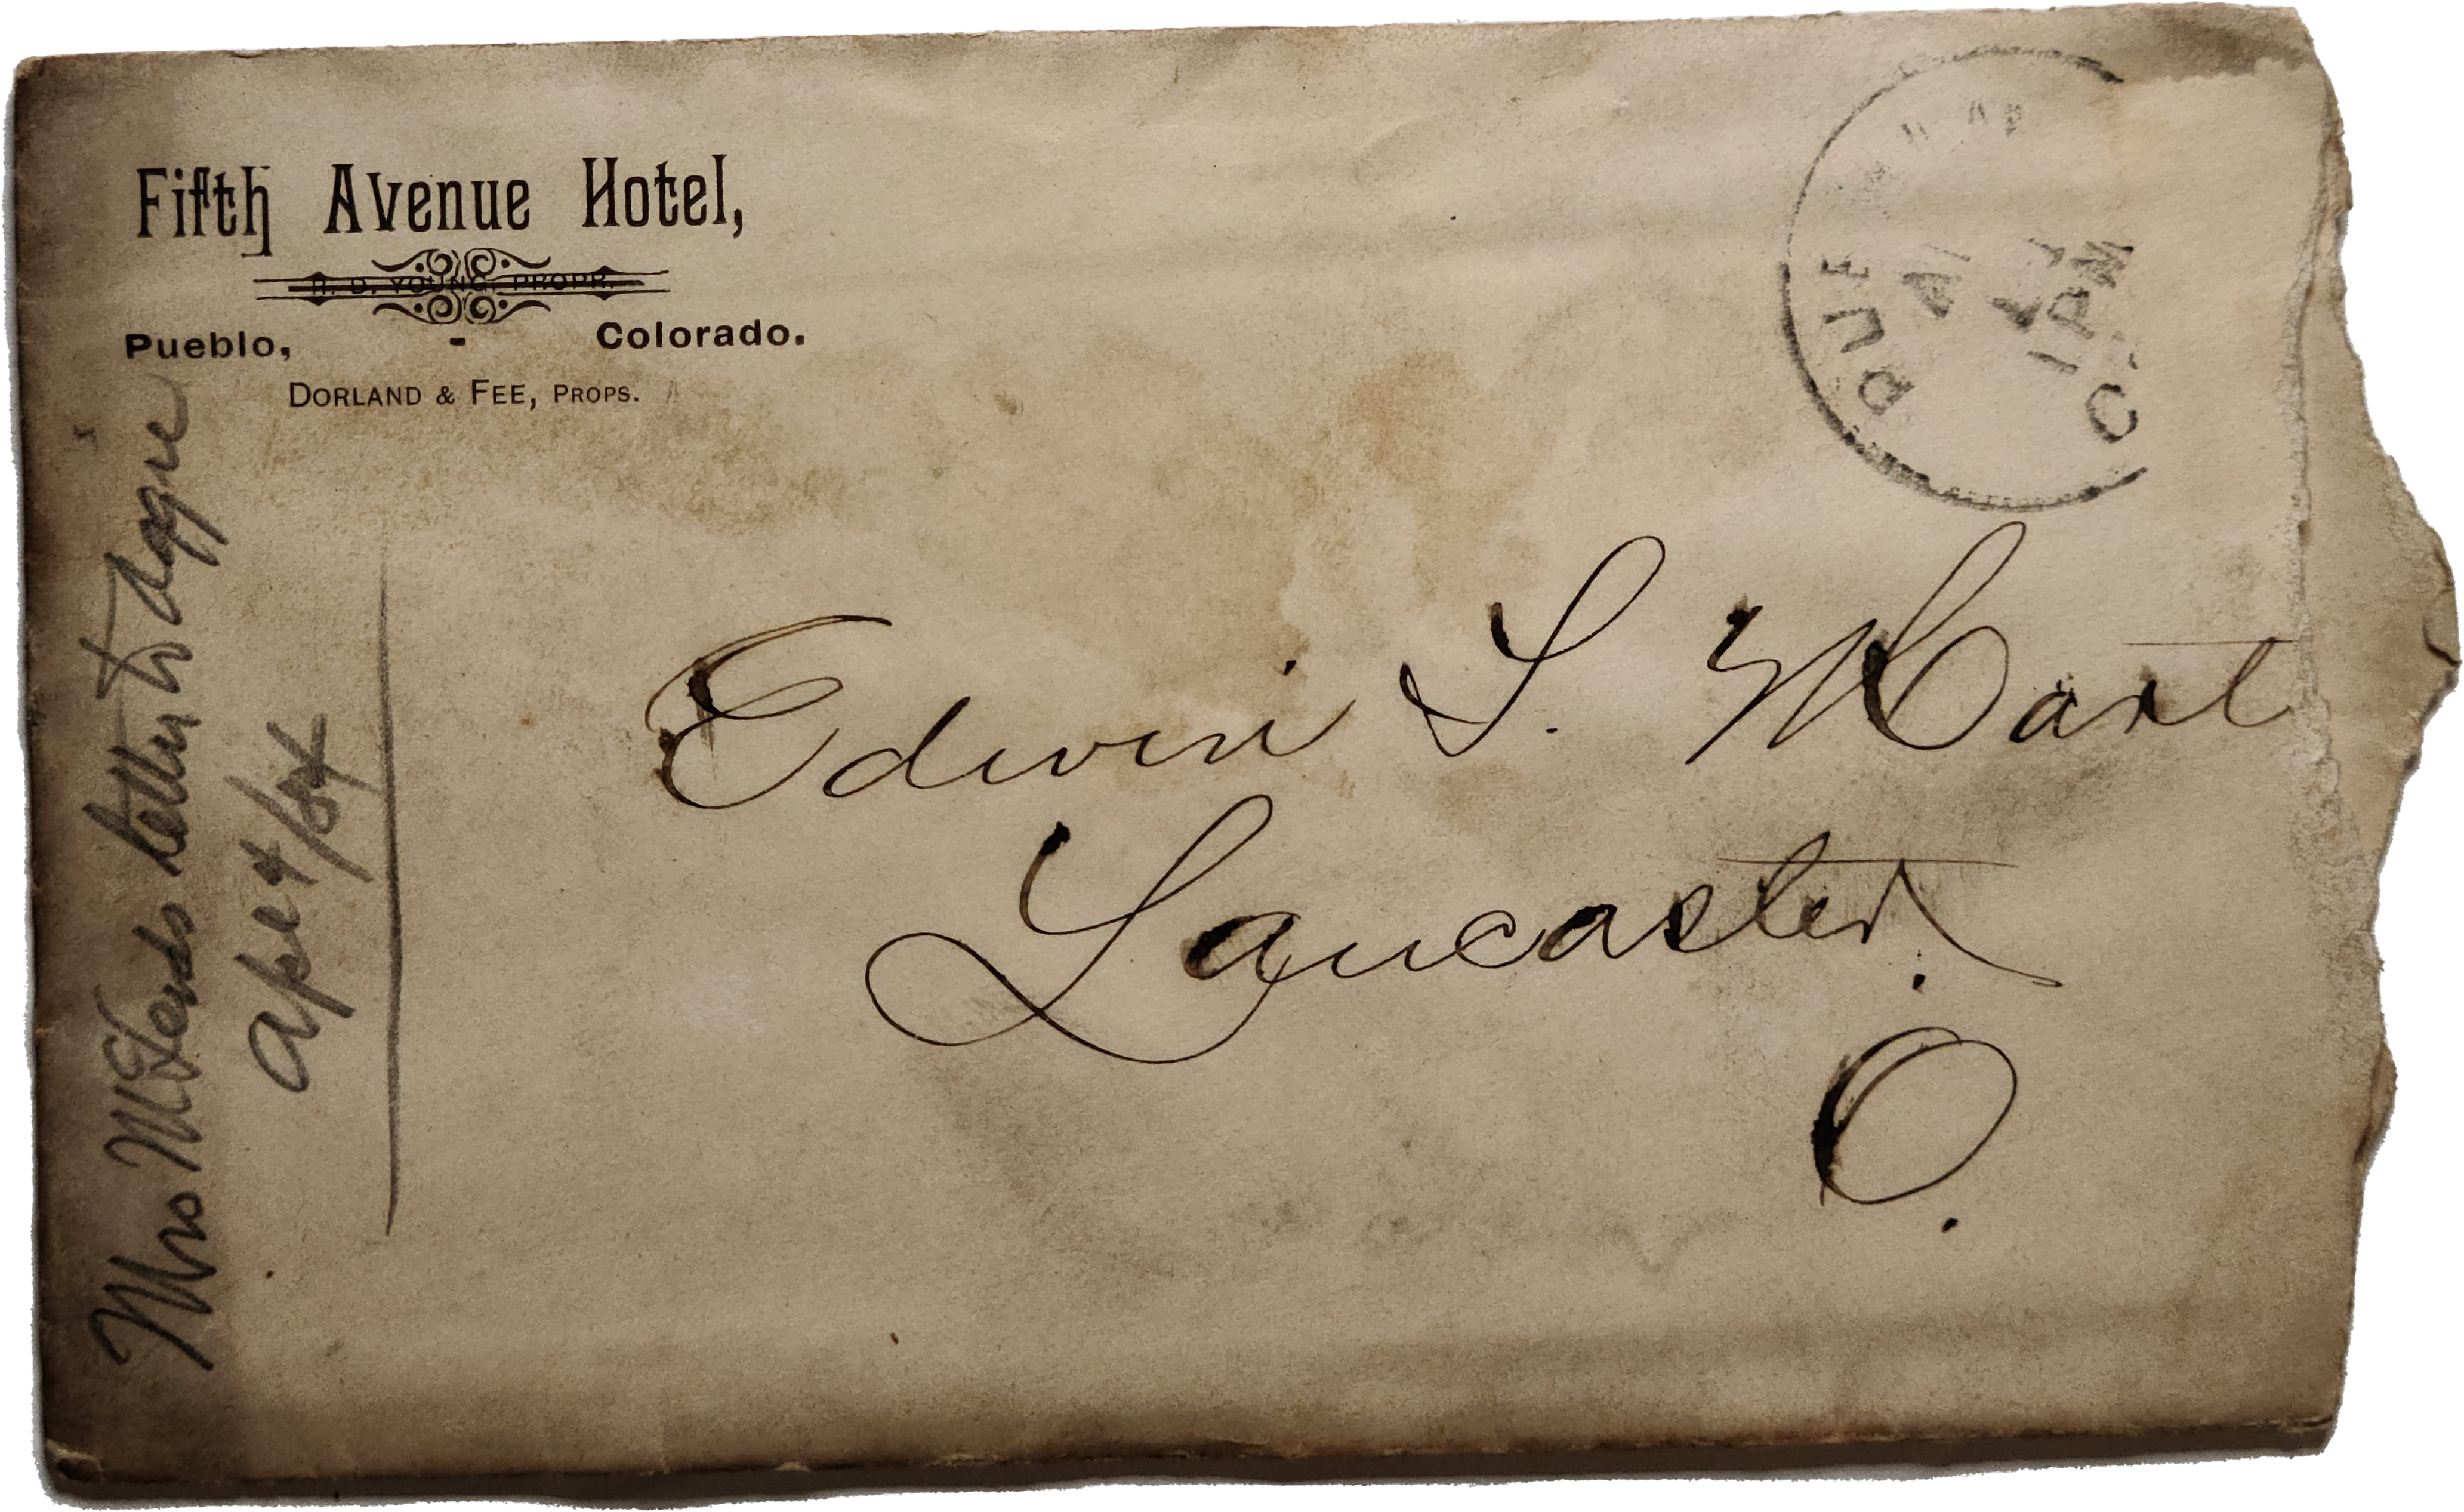 Fifth Avenue Hotel,
H. D. YOUNG, PROPR.
Pueblo, - Colorado.
DORLAND & FEE, PROPS.
1 PM
Edwin S. Hart
Lancaster.
O.
Mrs letter to Aggie
Apl 4/84